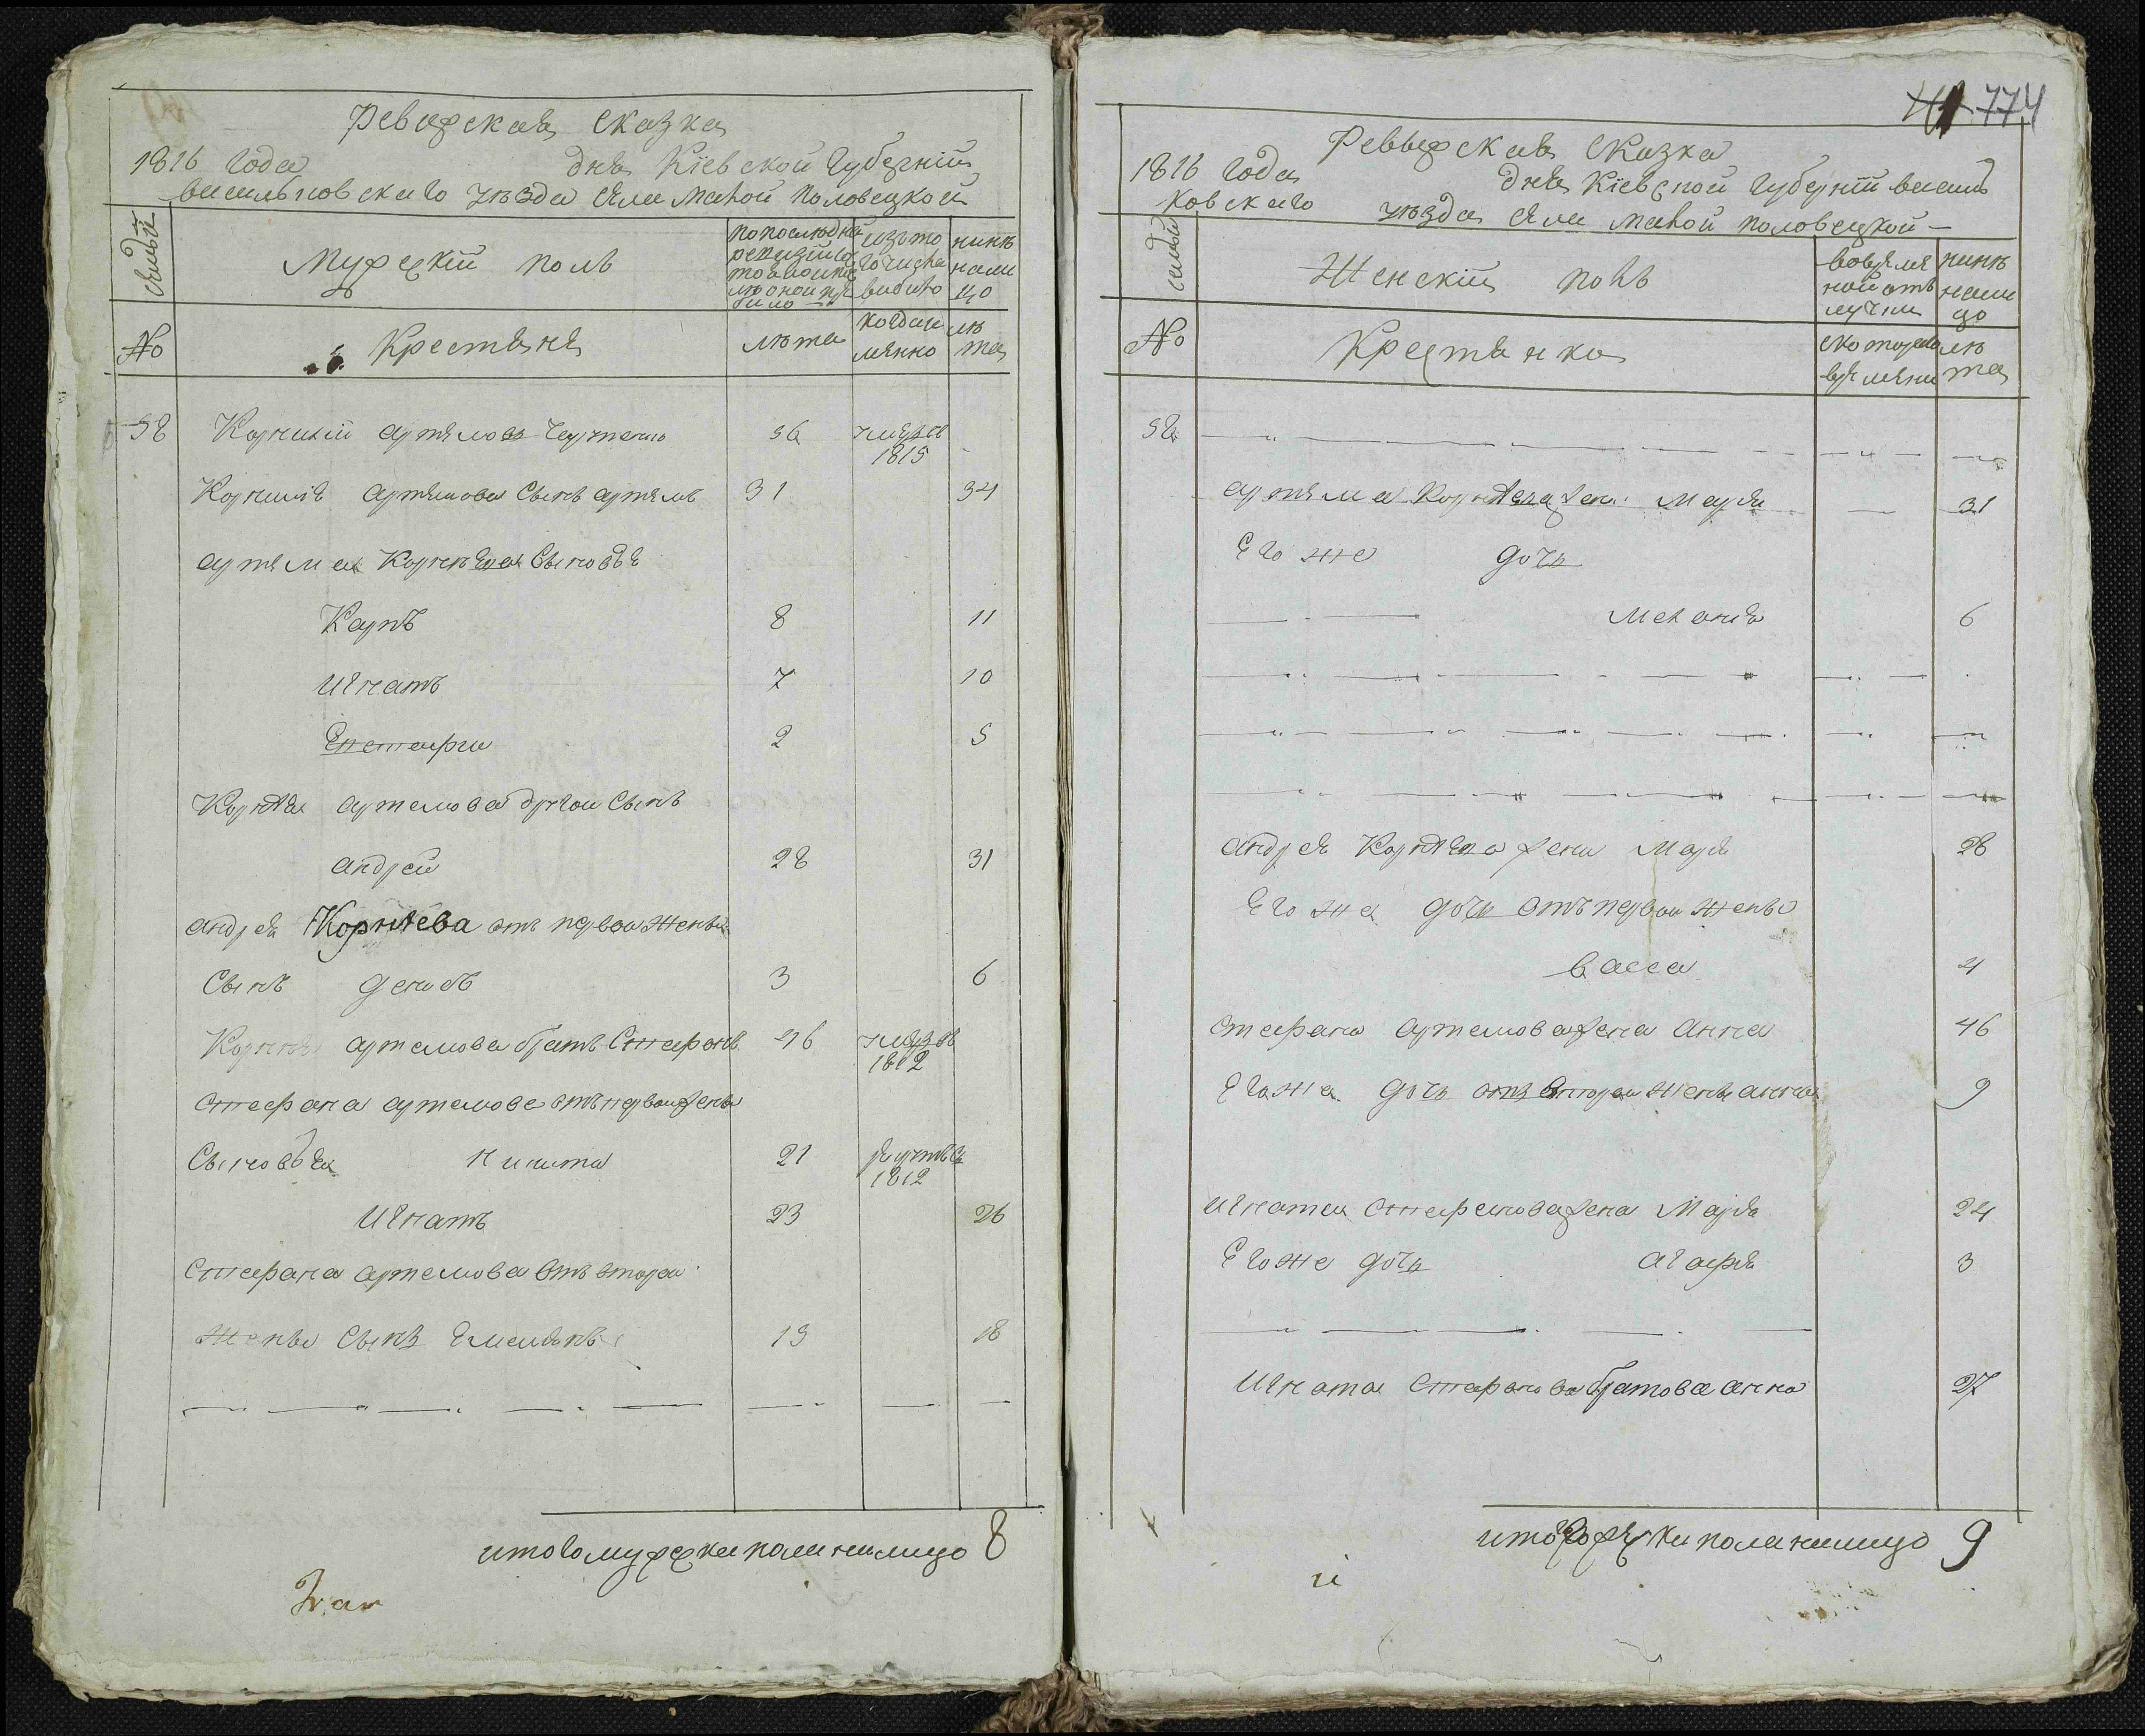 Ревизская сказка
1816 года дня Кіевской Губерніи
васильковскаго уезда села малой половецкой
семьи
Мужескій полъ
по последней ревизіи состояло и после оной прибыло
изъ того числа выбыло
ныне на лицо
№
Крестяня
лета
когда имянно
лета
58 Корнилій артямовъ 56 умре въ 1815
Корнилія артямова Сынъ артямъ 31 34
артяма Корнѣева Сыновья
Карпъ 8 11
игнатъ 7 10
Евстафи 2 5
Корнѣя артемова другои Сынъ
андрей 28 31
андрея Корнѣева отъ первои жены
Сынъ денисъ 3 6
Корнѣя артемова братъ Стефанъ 46 умре въ 1812
Стефана артемова отъ первои жены
Сыновья никита 21 1812
игнатъ 23 26
Стефана артемова отъ второи
жены Сынъ Емельянъ 15 18
итого мужеска пола налицо 8
774
Ревизская сказка
1816 года дня Кіевской Губерніи василь
ковскаго уезда села малой половецкой
семьи
Женскій полъ
во временной отлучки
ныне на лицо
№
Крестянка
с котораго времяни
лета
58
артяма Корнѣева жена Маря 31
Его же дочь
Меланія 6
андрея Корнѣева жена Маря 28
Его же дочь отъ первои жены
васса 4
Стефана артемова жена анна 46
Его же дочь отъ второи жены анна 9
игната Стефанова жена Маря 24
Его же дочь агафя 3
игната Стефанова братова анна 27
итого женска пола налицо 9
и